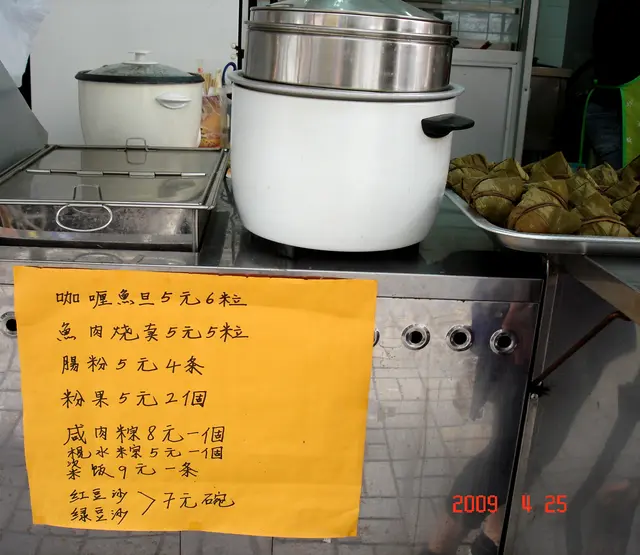 咖喱魚旦5元6粒
魚肉烧卖5元5粒
腸粉5元4条
粉果5元2個
咸肉粽8元一個
枧水粽5元一個
粢饭9元一条
红豆沙
绿豆沙
>7元碗
2009 4 25